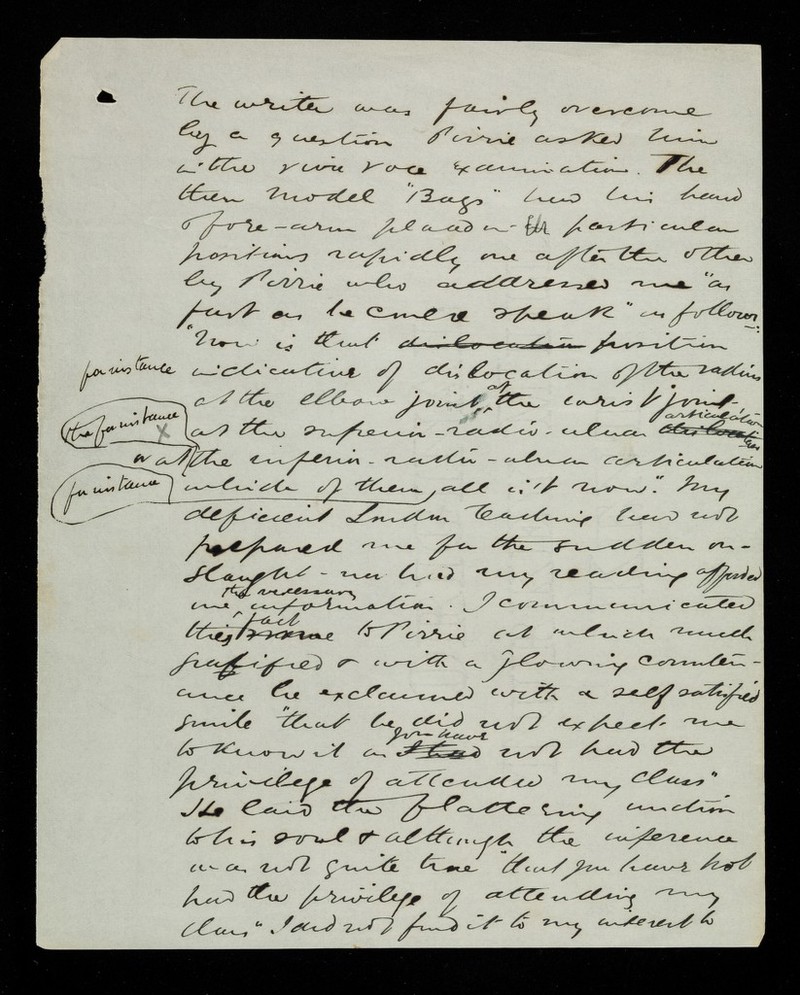 The writer was fairly overcome
by a question Pirrie asked him
in the viva voce examination. The
then model "Bags" had his hand
& fore-arm placed in particular
positions rapidly one after the other
by Pirrie who addressed me "as
fast as he could speak" as follows:
"Now is that dislocation position
for instance
indicative of dislocation of the radius
at the elbow joint, at the wrist joint
the for instance
at the superior-radio-ulnar dislocation articulation
or at the inferior-radio-ulnar articulation
for instance
which of them all is't now". My
deficient London teaching had not
prepared me for the sudden on-
slaught - nor had my reading afforded
me the necessary information. I communicated
this fact to Pirrie at which much
gratified & with a glowing counten-
ance he exclaimed with a self satisfied
smile "that he did not expect me
to know it as I had you have not had the
privilege of attended my class"
He laid the flattering unction
to his soul & although the inference
was not quite true "that you have not
had the privilege of attending my
class" I did not find it to my interest to